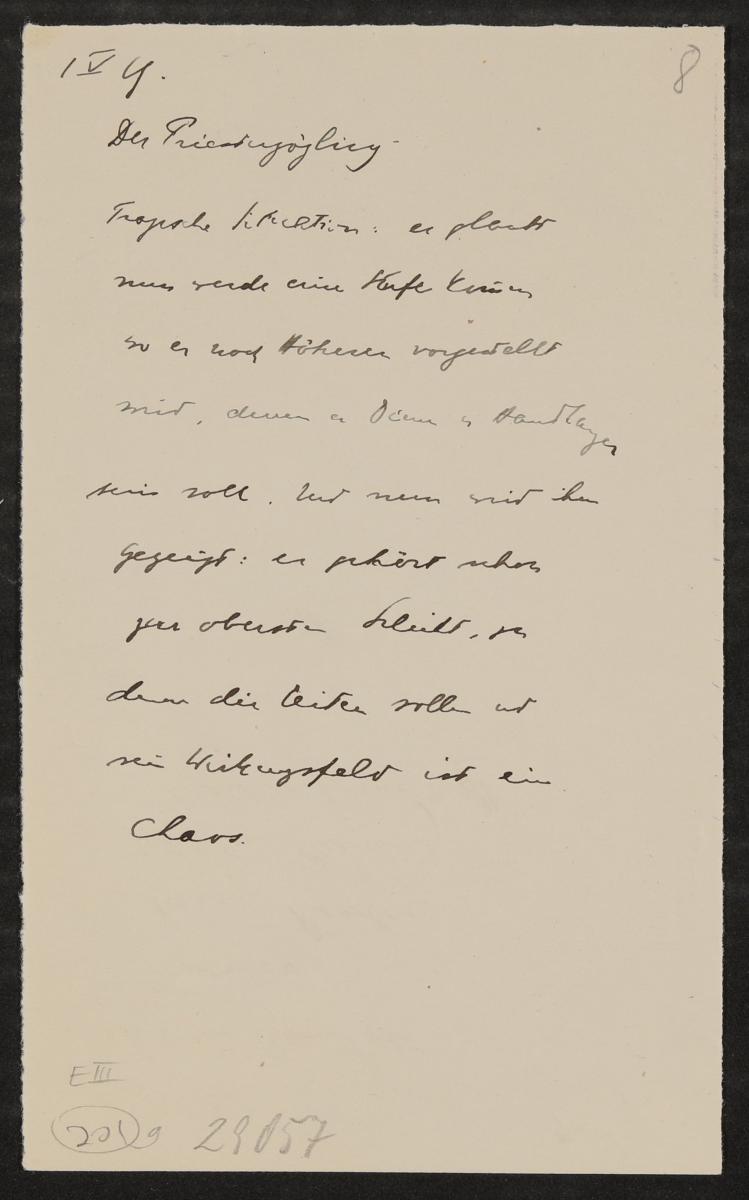 1 V 19.
8
Der Priesterzögling
Tragische Situation: er glaubt
nun werde eine Stufe kommen
wo er noch Höheren vorgestellt
wird, denen er Diener u Handlanger
sein soll. Und nun wird ihm
gezeigt: er gehört schon
zur obersten Schicht, zu
denen die leiten sollen und
sein Wirkungsfeld ist ein
Chaos.
E III
29057